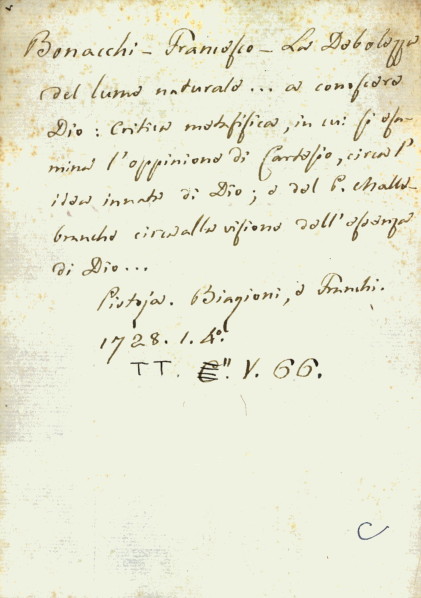 Bonacchi - Francesco - La Debolezza
del lume naturale ... a conoscere
Dio : Critica metafisica, in cui si esa-
mina l'oppinione di Cartesio, circa l'
idea innata di Dio ; e del P. Malle-
branche circa alla visione dell'essenza
di Dio ...
Pistoja. Biagioni, e Franchi.
1728. 1. 4.º
TT. V. 66.
C